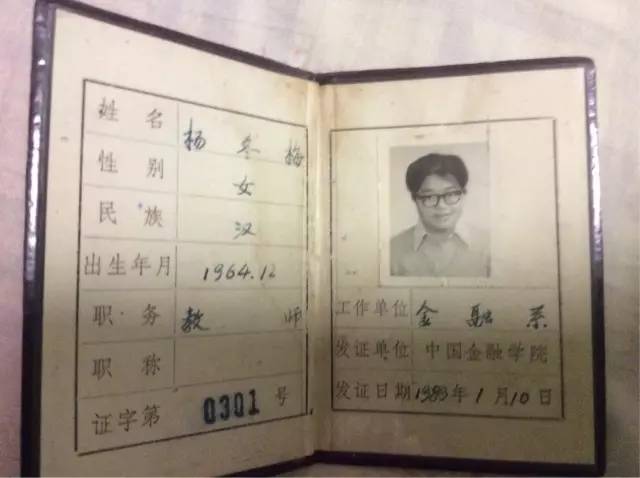 姓名 杨冬梅
性别 女
民族 汉
出生年月 1964.12
职务 教师
职称
证字第 0301 号
工作单位 金融系
发证单位 中国金融学院
发证日期 1989年1月10日